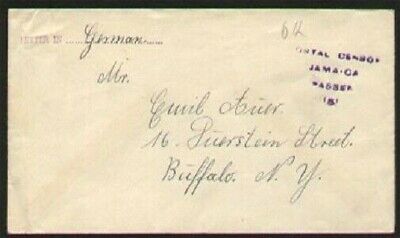 LETTER IN ...... German ......
6d
POSTAL CENSOR
JAMAICA
PASSED
(8)
Mr.
Emil Auer.
16 Puerstein Street.
Buffalo. N. Y.